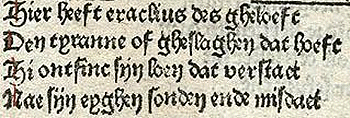 Hier heeft eraclius des gheloeft
Den tyranne of gheslaghen dat hoeft
Hi ontfinc sijn loen dat verstaet
Nae sijn eyghen sonden ende misdaet